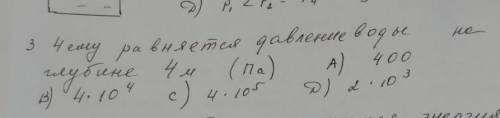 D) P₁ < P₂ =
3 Чему равняется давление воды на
глубине 4 м (Па) A) 400
B) 4·10⁴ C) 4·10⁵ D) 2·10³